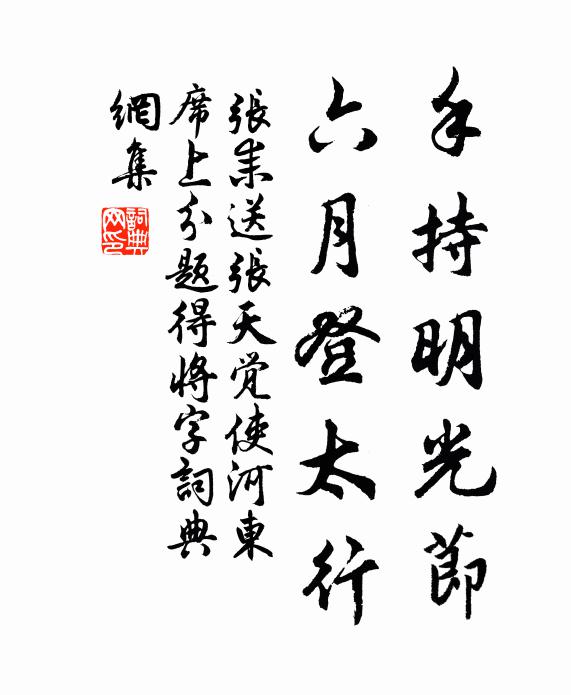 手持明光節
六月登太行
張耒送張天覺使河東
席上分題得將字詞典
網集
詞典
网印